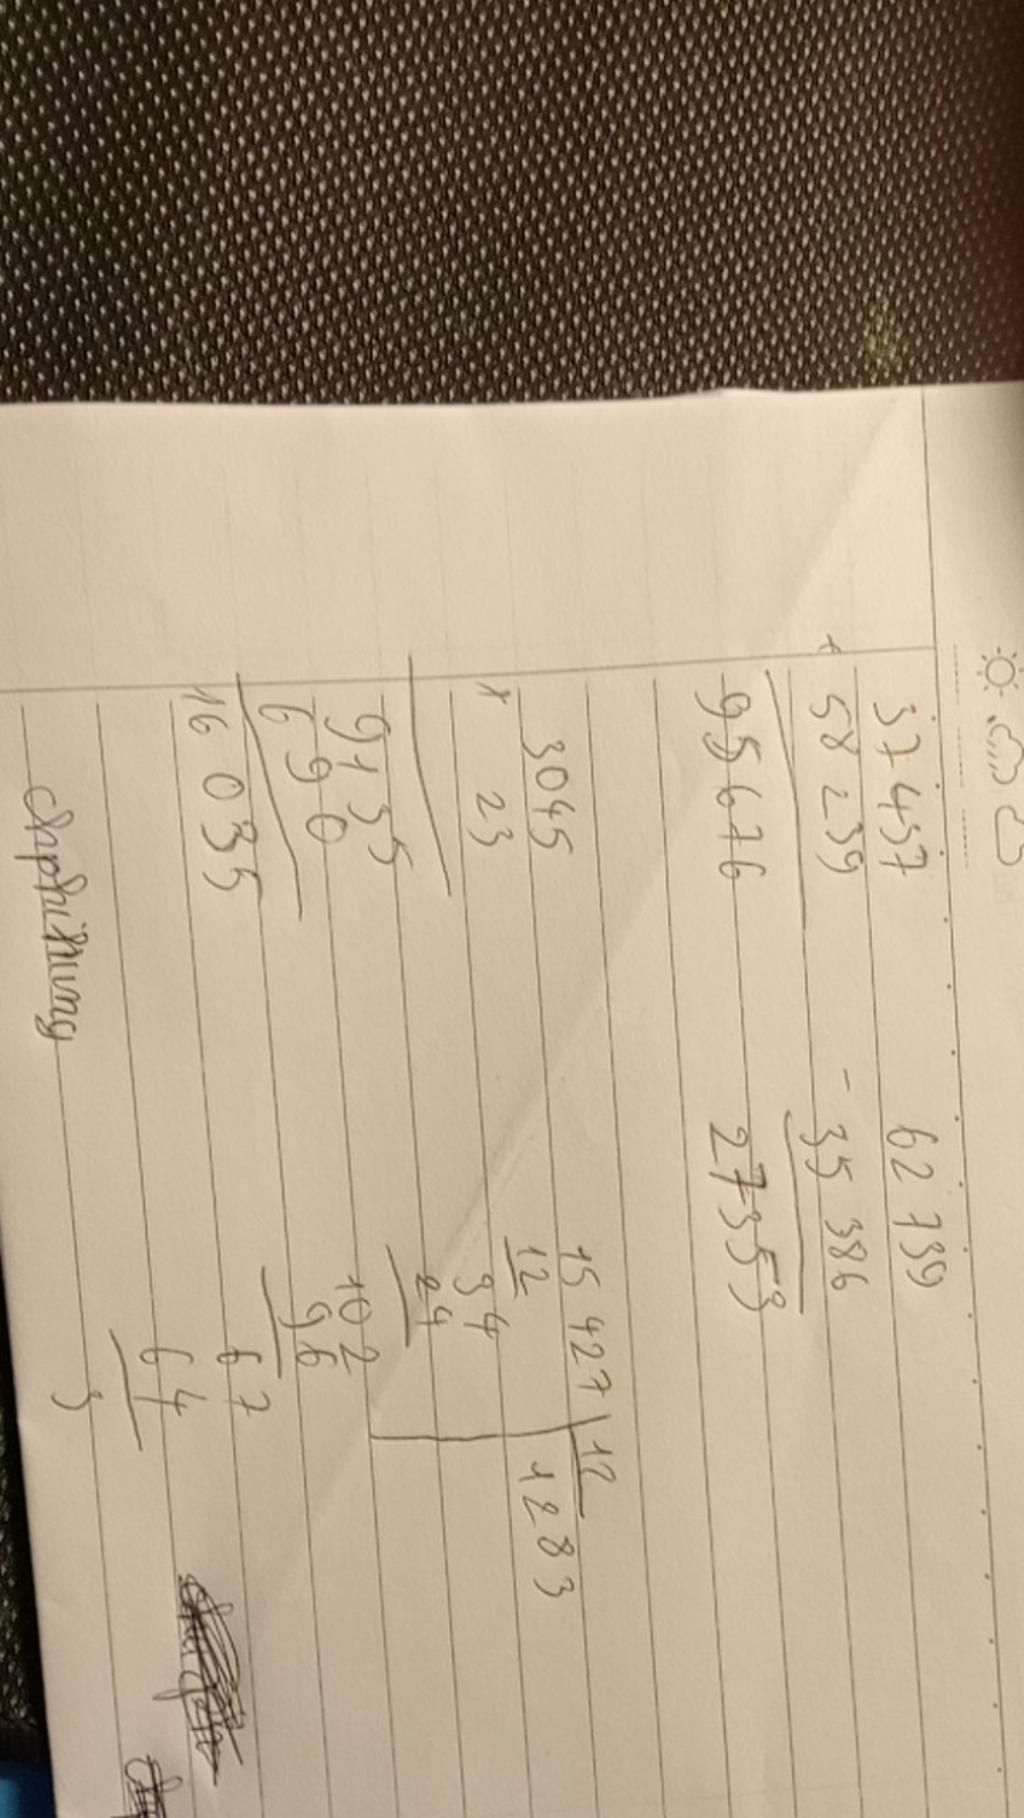 37 457
+ 58 239
95 676
62 739
- 35 386
27353
3045
× 23
9135
6 9 0
16 035
15 427 12
12 1283
34
24
102
96
67
64
3